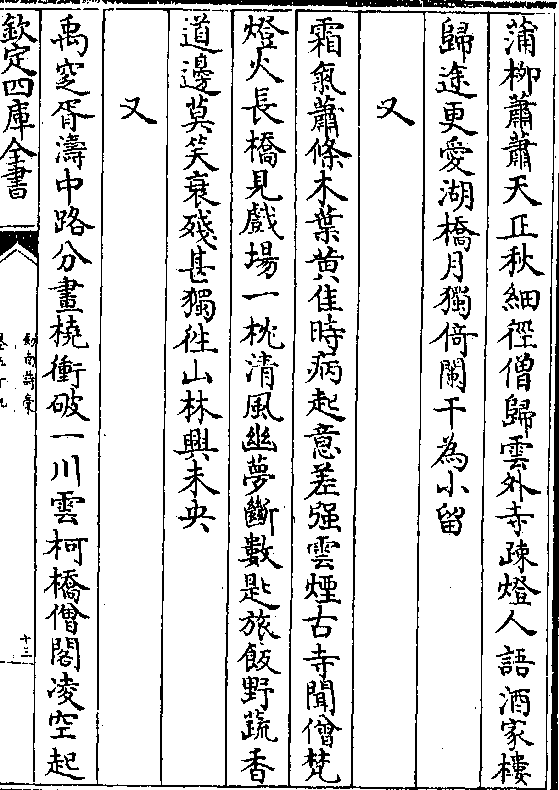 蒲柳蕭蕭天正秋細徑僧歸雲外寺疎燈人語酒家樓
歸途更愛湖橋月獨倚闌干為小留
又
霜氣蕭條木葉黄佳時病起意差强雲煙古寺聞僧梵
燈火長橋見戲場一枕清風幽夢斷數匙旅飯野蔬香
道邊莫笑衰殘甚獨徃山林興未央
又
禹窆胥濤中路分畫橈衝破一川雲柯橋僧閣凌空起
欽定四庫全書
劍南詩稾
卷五十九
十三